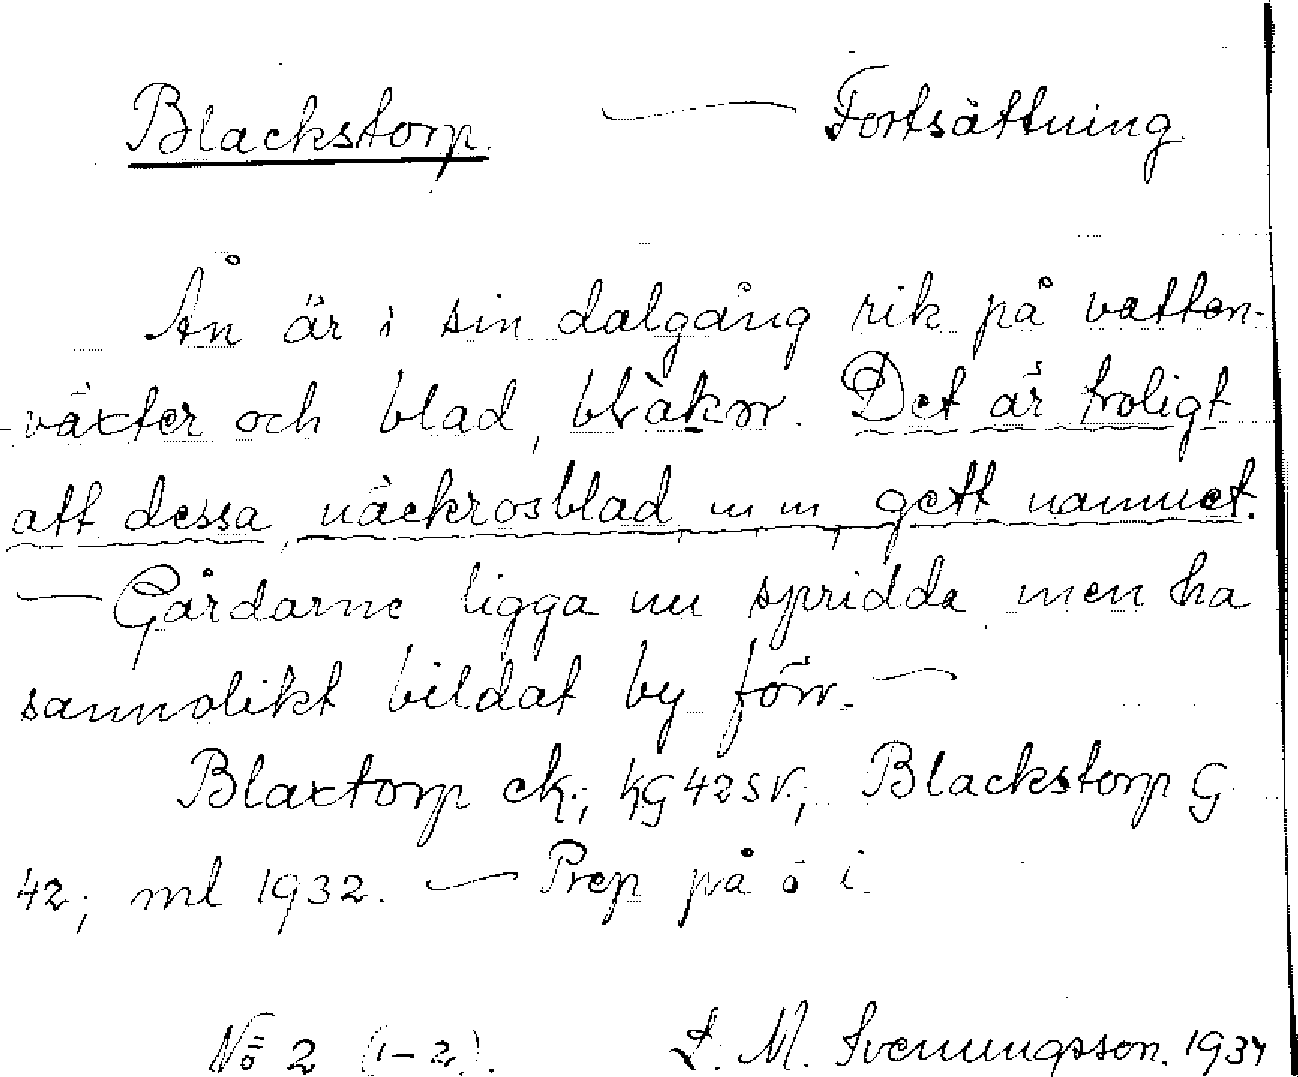 Blackstorp. — Fortsättning
Ån är i sin dalgång rik på vatten-
växter och blad, bläkor. Det är troligt
att dessa, näckrosblad m m, gett namnet.
— Gårdarne ligga nu spridda men ha
sannolikt bildat by förr. —
Blaxtorp ck.; KG 42 SV.; Blackstorp G
42; ml 1932. — Prep på o i.
No 2 (1-2). L. M. Svenungsson. 1934